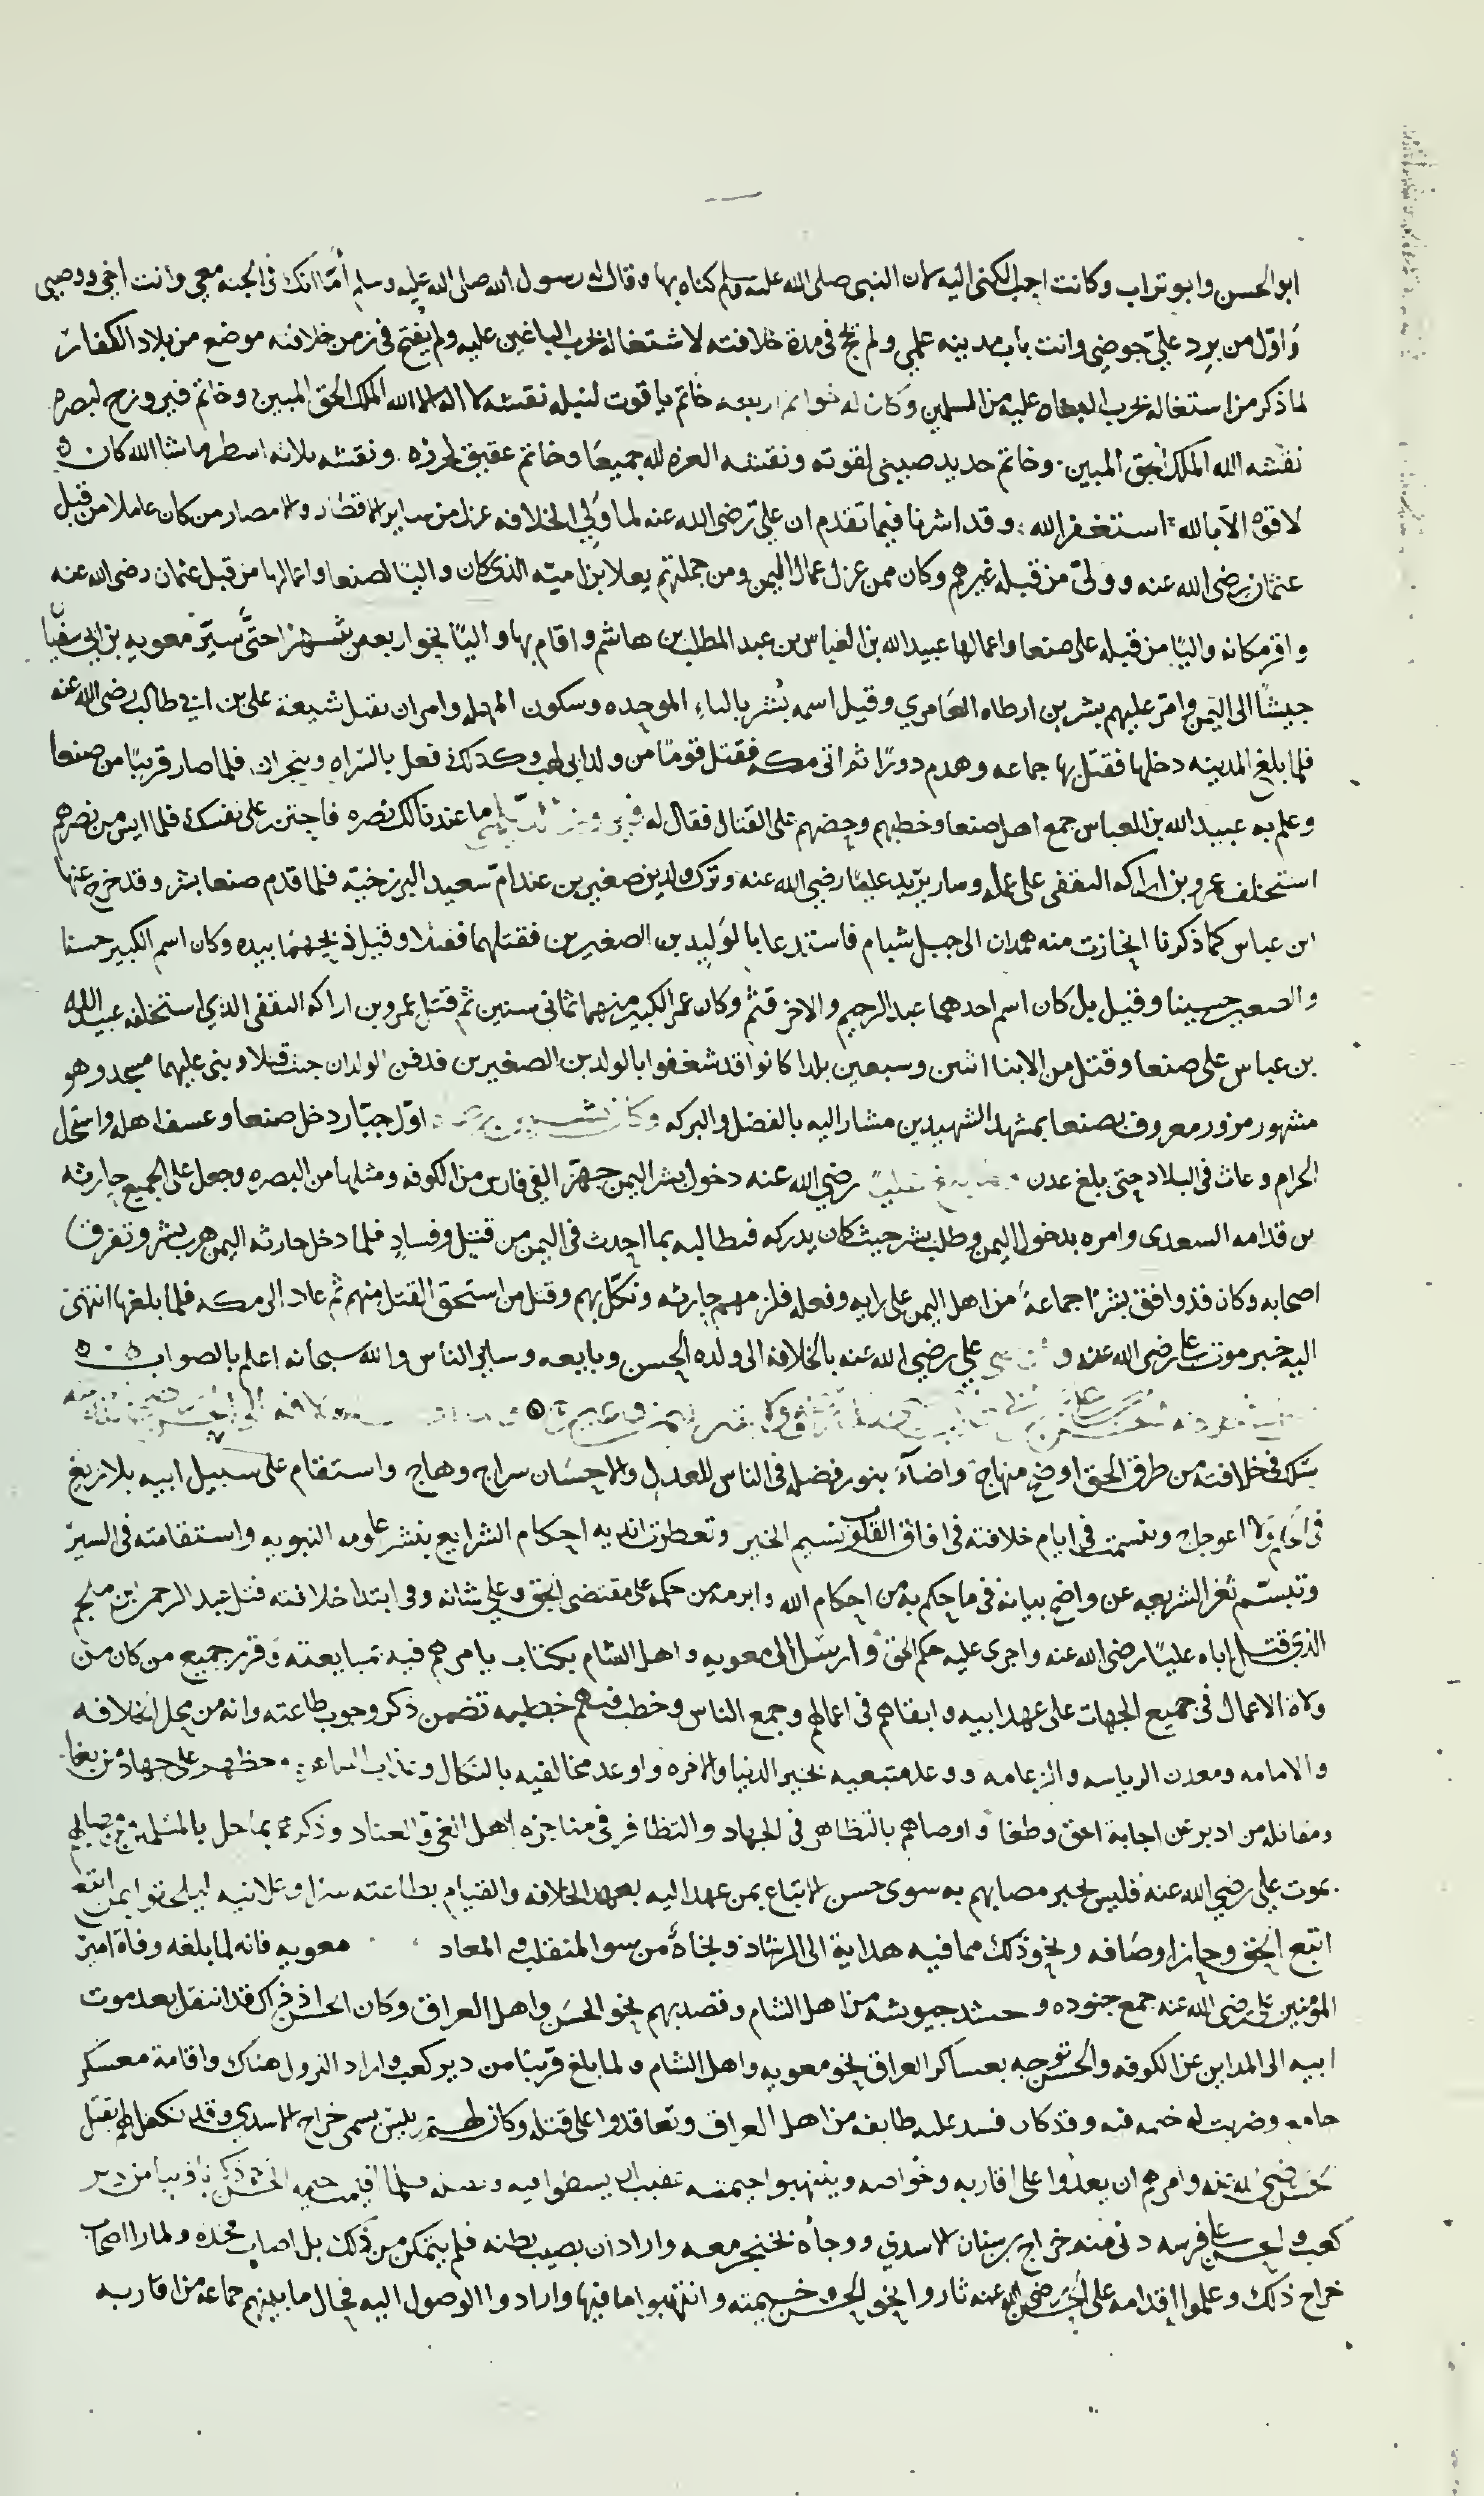 ابو الحسن وابو تراب وكانت احب الكنى اليه لان النبى صلى الله عليه وسلم كناه بها وقال له رسول الله صلى الله عليه وسلم أمّا انك فى الجنه معى وانت اخى ووصيى
وَاوّل من يرد علىّ حوضى وانت باب مدينه علمى ولم يحج فى مدة خلافته لاشتغاله بحرب الباغين عليه ولم يُفتح فى زمن خلافته موضع من بلاد الكفار
لما ذكر من استغاله بحرب البغاه عليه من المسلمين وكان له خواتم اربعه خاتم ياقوت لنيله نقشه لا اله الا الله الملك الحق المبين وخاتم فيروزج لبصره
نقشه الله الملك الحق المبين وخاتم حديد صينى لقوته ونقشه العزه لله جميعًا وخاتم عقيق لحرزه ونقشه ثلاثه اسطر ما شا الله كان
لا قوه الا بالله استغفر الله وقد اشرنا فيما تقدم ان على رضى الله عنه لما وَلِى الخلافه عزل من ساير الاقطار والامصار من كان عاملا من قبل
عثمان رضى الله عنه وولّى من قبله غيرهم وكان ممن عزل عمال اليمن ومن جملتهم يعلا بن اميّه الذى كان واليًا لصنعا واعمالها من قبل عثمان رضى الله عنه
واقر مكانه واليًا من قبله على صنعا واعمالها عبيد الله بن العباس بن عبد المطلب بن هاشم واقام بها واليًا نحو اربعه شهرا حتّى سيّر معويه بن ابى سفيا
جيشًا الى اليمن وامّر عليهم بشر بن ارطاه العَامري وقيل اسمه بُسْر بالباءِ الموحده وسكون المهمله وامر ان يقتل شيعة على بن ابى طالب رضى الله عنه
فلما بلغ المدينه دخلها فقتل بها جماعه وهدم دورًا ثم اتى مكه فقتل قومًا من ولد ابى لهب وكذلك فعل بالسّراه وبنجران فلما صار قريبًا من صنعا
وعلم به عبيد الله بن العباس جمع اهل صنعا وخطبهم وحضهم على القتال فقال له فيروز ما عندنا لك نصره فاحترز على نفسك فلما ايس من نصرهم
استخلف عمرو بن اراكه الثقفى على عمله وسار يريد عليًّا رضي الله عنه وترك ولدين صغيرين عند امّ سعيد البرزخيّه فلما قدم صنعا بشر وقد خرج عنها
ابن عباس كما ذكرنا انحازت منه همدان الى جبل شبام فاستدعا بالوَليدين الصغيرين فقتلهما فقتلا وقيل ذبحهما بيده وكان اسم الكبير حسنا
والصغير حسينا وقيل بل كان اسم احدهما عبد الرحيم والاخر قثم وكان عمر الكبير منهما ثمانى سنين ثم قتل عمرو بن اراكه الثقفى الذي استخلفه عبيد الله
بن عباس على صنعا وقتل من الابنا اثنين وسبعين بلدا كانوا قد شغفوا بالولدين الصغيرين فدفن الولدان حيث قتلا وبنى عليهما مسجد وهو
مشهور مزور معروف بصنعا بمشهد الشهيدين مشار اليه بالفضل والبركه وكان اوّل جبّار دخل صنعا وعسف اهله واستحل
الحرام وعاث فى البلاد حتى بلغ عدن رضي الله عنه دخول بشر اليمن جهّز الفى فارس من الكوفه ومثلها من البصره وجعل على الجميع حارثه
بن قدامه السعدى وامره بدخول اليمن وطلب بشر حيث كان يدركه فيطالبه بما احدث فى اليمن من قتيل وفسادٍ فلما دخل حارثه اليمن هرب بشر وتفرق
اصحابه وكان قد وافق بشرًا جماعةً من اهل اليمن على رايه وفعله فلزمهم حارثه ونكّل بهم وقتل من استحق القتل منهم ثم عاد الى مكه فلما بلغها انتهى
اليه خبر موت على رضى الله عنه و علي رضي الله عنه بالخلافه الى ولده الحسن وبايعه وساير الناس والله سبحانه اعلم بالصواب
سَلَك فى خلافته من طرق الحق اوضح منهاج واضآء بنور فضله فى الناس للعدل والاحسَان سراج وهاج واستقام على سبيل ابيه بلا زيغ
ولا اعوجاج وتنسمت فى ايام خلافته فى افاق القلوب نسيم الخير وتعطرت انديه احكام الشرايع بنشر علومه النبويه واستقامته فى السيرّ
وتبسّم ثغر الشريعه عن واضح بيانه فى ما حكم به من احكام الله وابرمه من حكمه على مقتضى الحق وعلى شانه وفى ابتدا خلافته قتل عبد الرحمن ابن ملجم
الذي قتل اباه عليًا رضى الله عنه واجرى عليه حكم الحق وارسَل الى معويه واهل الشام بكتاب يامرهم فيه بمبايعته وَقرر جميع من كان من
ولاة الاعمال فى جميع الجهات على عهد ابيه وابقاهم فى اعمالهم وجمع الناس وخطب فيهم خطبه تضمن ذكر وجوب طاعته وانه من محل الخلافه
والامامه ومعدن الرياسه والزعامه ووعد متبعيه بخير الدنيا والاخره واوعد مخالفيه بالنكال وعذاب وحظهم على جهاد من بغا
ومقاتله من ادبر عن اجابة الحق وطغا واوصاهم بالتظاهر فى الجهاد والتظافر فى مناجزه اهل الغىّ والعناد وذكرهم بما حل بالمسلمين من مصابهم
بموت على رضي الله عنه فليس لجبر مصابهم به سوى حسن الاتباع بمن عهد اليه بعهد الخلافه والقيام بطاعته سرا وعلانيه ليلحقوا بمن اتبع
اتبع الحق وحاز اوصَافه ونحو ذلك مما فيه هداية الى الرشاد ونجاةٌ من سوا المنقلب فى المعاد معويه فانه لما بلغه وفاة امير
المؤمنين على رضى الله عنه جمع جنوده وحشد جيوشه من اهل الشام وقصد بهم نحو الحسَن واهل العراق وكان الحسن اذ ذاك قد انتقل بعد موت
ابيه الى المداين عن الكوفه والحسن توجه بعساكر العراق نحو معويه واهل الشام ولما بلغ قريبًا من دير كعب واراد النزول هناك واقامة معسكر
حامه وضربت له خيمه فيه وقد كان فسد عليه طايفه من اهل العراق وتعاقدوا على قتله وكان لهم رييس يسمى خراج الاسدي وقد تكفل لهم بقتل
حسن رضى الله عنه وامرهم ان يعدوا على اقاربه وخواصه وينهبوا خيمته عقيب ان يسطو فيه فلما اقيمت خيمه الحسن قريبا من دير
كعب والحسن على فرسه دنى منه خراج بن سنان الاسدي ووجأه بخنجر معه واراد ان يصيب بطنه فلم يتمكن من ذلك بل اصاب فخذه ولما را اصحاب
خراج ذلك وعلموا اقدامه على الحسَن رضي الله عنه ثاروا نحو الحسن وخيمته وانتهبوا ما فيها وارادوا الوصول اليه فحال ما بينهم جماعه من اقاربه